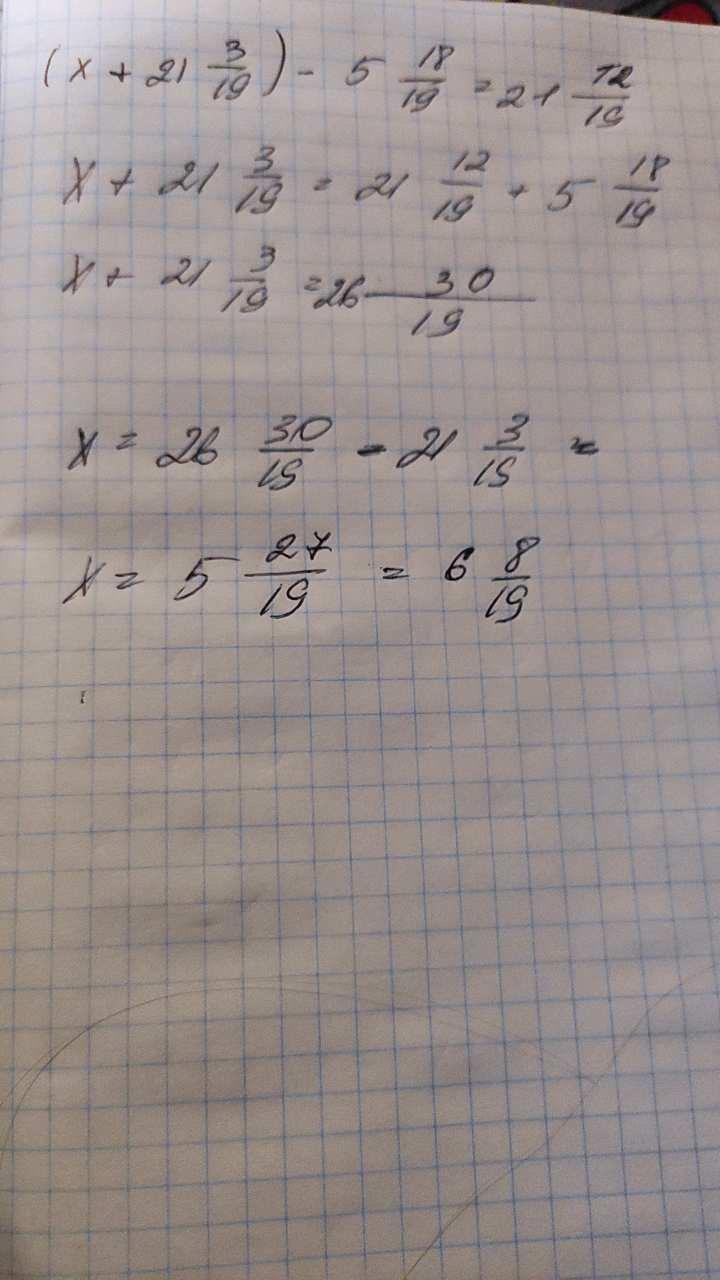 (x + 21 3/19) - 5 18/19 = 21 12/19
x + 21 3/19 = 21 12/19 + 5 18/19
x + 21 3/19 = 26 30/19
x = 26 30/19 - 21 3/19 =
x = 5 27/19 = 6 8/19